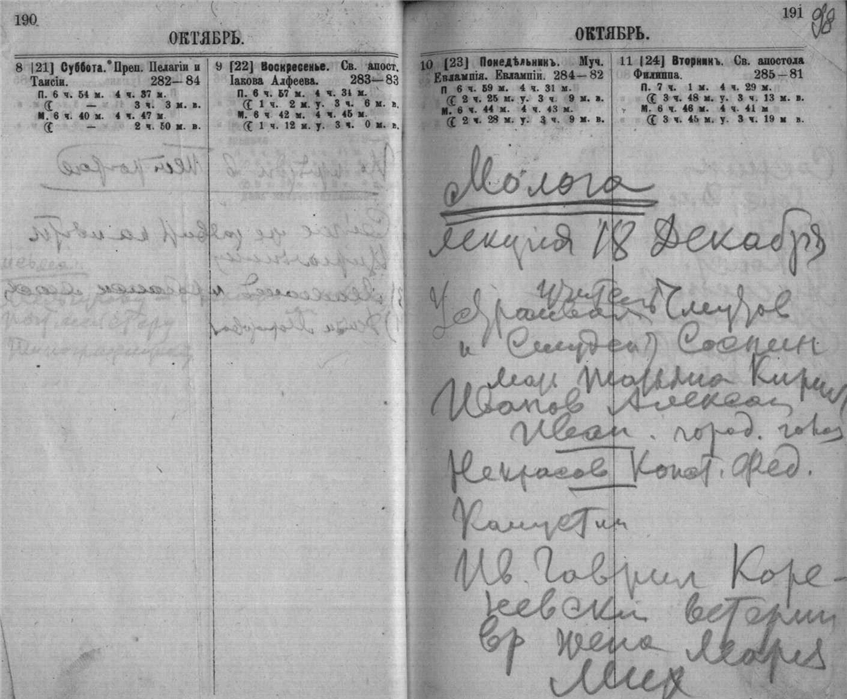 190
ОКТЯБРЬ.
8 [21] Суббота. Преп. Пелагіи и
Таисіи. 282—84
П. 6 ч. 54 м. 4 ч. 37 м.
☾ — 3 ч. 3 м. в.
М. 6 ч. 40 м. 4 ч. 47 м
☾ — 2 ч. 50 м. в.
9 [22] Воскресенье. Св. апост.
Іакова Алфеева. 283—83
П. 6 ч. 57 м. 4 ч. 34 м.
☾ 1 ч. 2 м. у. 3 ч. 6 м. в.
М. 6 ч. 42 м. 4 ч. 45 м.
☾ 1 ч. 12 м. у. 3 ч. 0 м. в.
191
98
ОКТЯБРЬ.
10 [23] Понедѣльникъ. Муч.
Евлампія. Евлампіи. 284—82
П 6 ч. 59 м. 4 ч. 31 м.
☾ 2 ч. 25 м. у. 3 ч 9 м. в.
М. 6 ч. 44 м. 4 ч. 43 м.
☾ 2 ч. 28 м. у. 3 ч. 9 м. в.
11 [24] Вторникъ. Св. апостола
Филиппа. 285—81
П. 7 ч. 1 м. 4 ч. 29 м.
☾ 3 ч. 48 м. у. 3 ч. 13 м. в.
М. 6 ч. 46 м. 4 ч. 41 м
☾ 3 ч. 45 м. у. 3 ч. 19 м в.
Молога
лекция 18 Декабря
учитель
и Студент Соснин
Кирил
Иванов Александ
Иван. город. голов
Некрасов Конст. Фед.
Капустин
Ив. Гаврил Коре-
невски ветерин
вр жена Мария
Мих